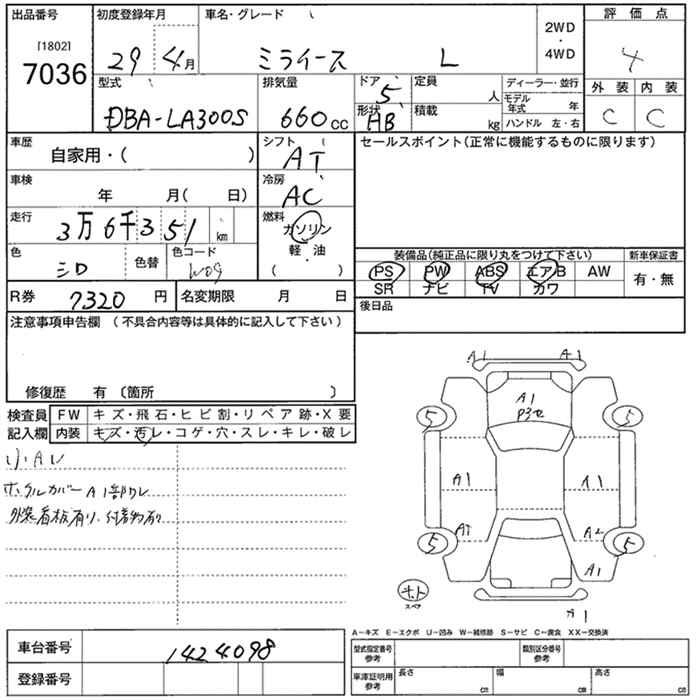 出品番号
[1802]
7036
初度登録年月
29 4月
車名・グレード
ミライース L
2WD
・
4WD
評価点
4
外装 内装
C C
型式
DBA-LA300S
排気量
660cc
ドア
5
形状
HB
定員
人
積載
kg
ディーラー・並行
モデル年式 年
ハンドル 左・右
車歴
自家用・( )
シフト
AT
車検
年 月( 日)
冷房
AC
走行
3万6千351 km
燃料
ガソリン
軽油
・
( )
色
シロ
色替
色コード
W09
R券
7320 円
名変期限 月 日
セールスポイント(正常に機能するものに限ります)
装備品(純正品に限り丸をつけて下さい)
PS PW ABS エアB AW
SR ナビ TV カワ
新車保証書
有・無
後日品
注意事項申告欄 (不具合内容等は具体的に記入して下さい)
修復歴 有〔箇所 〕
検査員
記入欄
FW キズ・飛石・ヒビ割・リペア跡・X要
内装 キズ・汚レ・コゲ・穴・スレ・キレ・破レ
小A
カバーA1
外装看板有り、付着物有り
A1 A1
A1
5 5
A1 A1
A2
5 5
A1
スペア
A1
A−キズ E−エクボ U−凹み W−補修跡 S−サビ C−腐食 XX−交換済
車台番号
1424098
登録番号
型式指定番号
参考
類別区分番号
参考
車庫証明用
参考
長さ cm
幅 cm
高さ cm